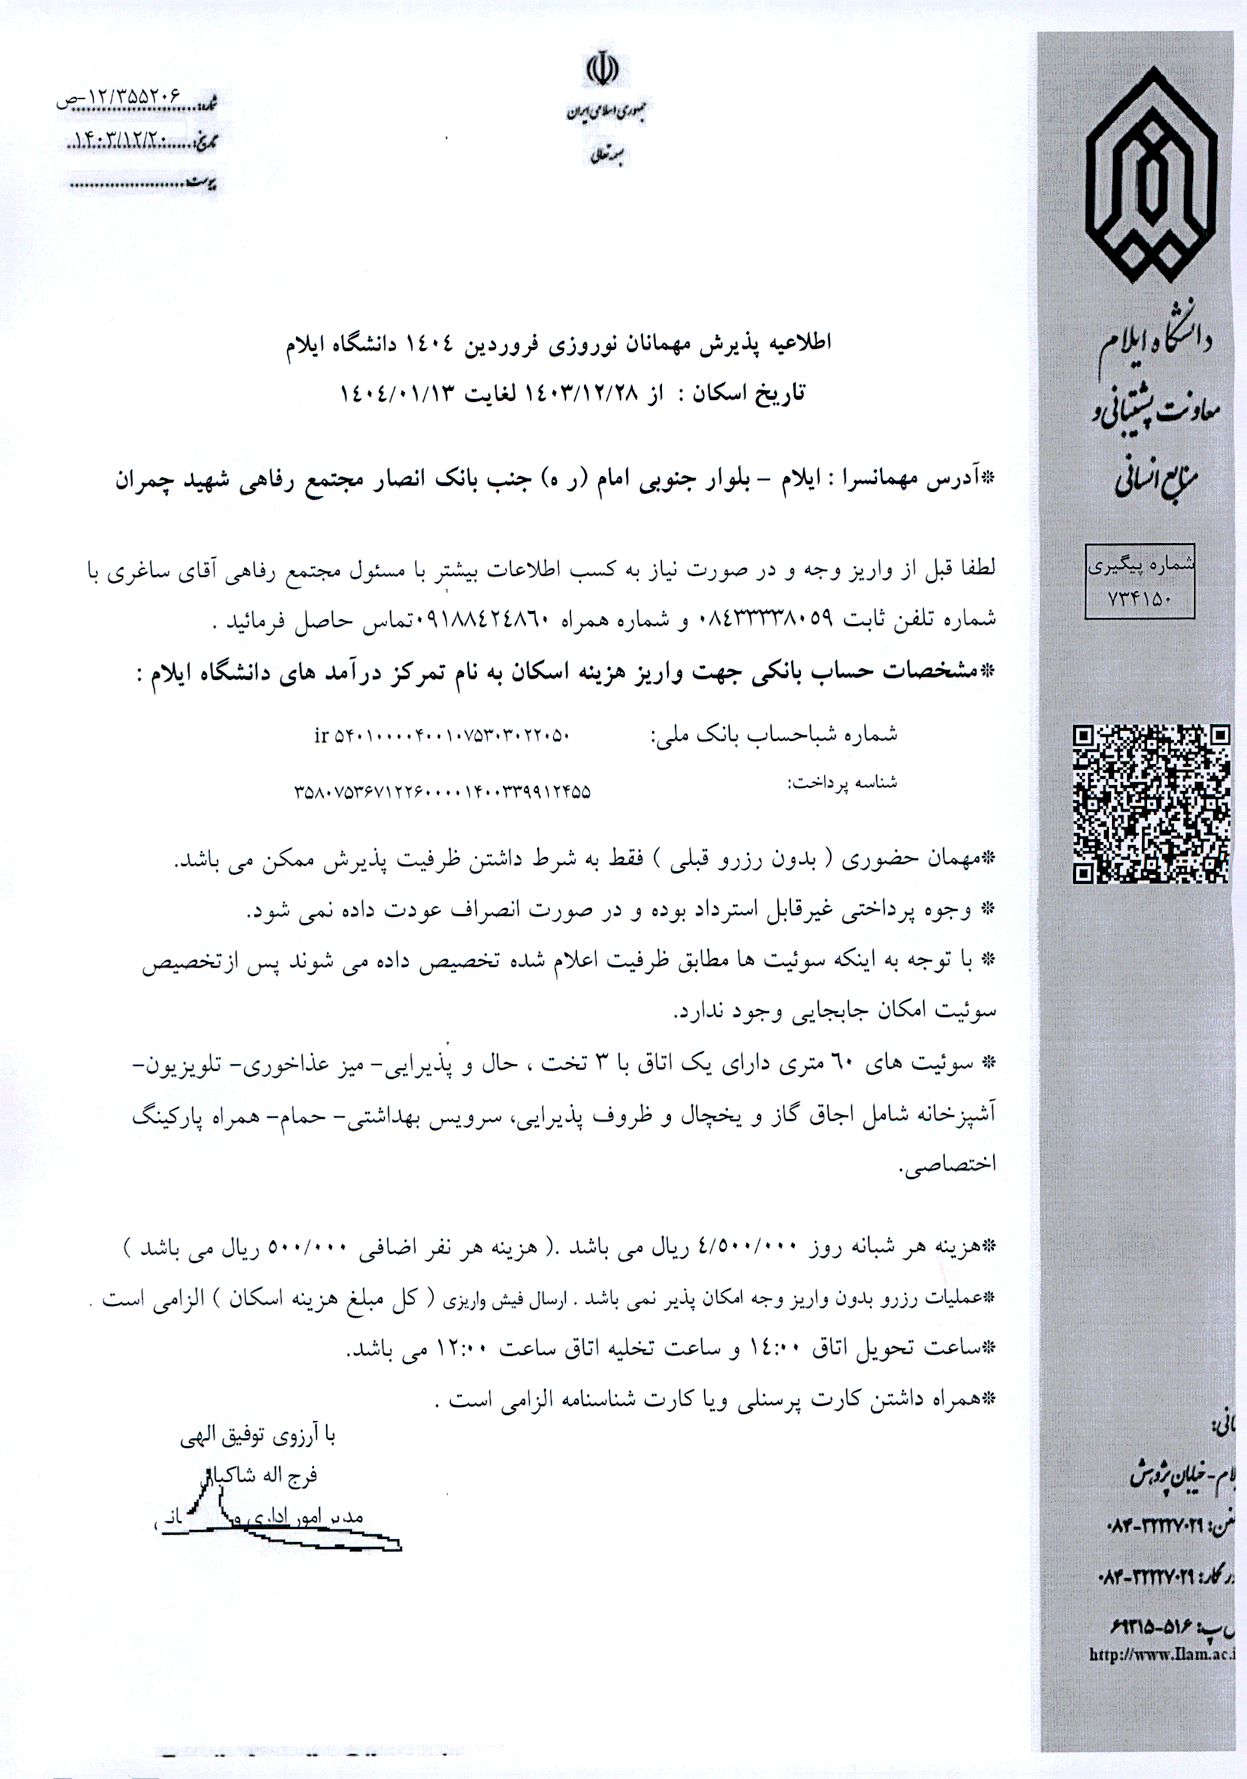 جمهوری اسلامی ایران
بسمه تعالی
شماره: ۱۲/۳۵۵۲۰۶-ص
تاریخ: ۱۴۰۳/۱۲/۲۰
پیوست:
دانشگاه ایلام
معاونت پشتیبانی و
منابع انسانی
شماره پیگیری
۷۳۴۱۵۰
اطلاعیه پذیرش مهمانان نوروزی فروردین ١٤٠٤ دانشگاه ایلام
تاریخ اسکان : از ١٤٠٣/١٢/٢٨ لغایت ١٤٠٤/٠١/١٣
*آدرس مهمانسرا : ایلام – بلوار جنوبی امام (ر ه) جنب بانک انصار مجتمع رفاهی شهید چمران
لطفا قبل از واریز وجه و در صورت نیاز به کسب اطلاعات بیشتر با مسئول مجتمع رفاهی آقای ساغری با
شماره تلفن ثابت ٠٨٤٣٣٣٣٨٠٥٩ و شماره همراه ٠٩١٨٨٤٢٤٨٦٠تماس حاصل فرمائید .
*مشخصات حساب بانکی جهت واریز هزینه اسکان به نام تمرکز درآمد های دانشگاه ایلام :
شماره شباحساب بانک ملی: ir ۵۴۰۱۰۰۰۰۴۰۰۱۰۷۵۳۰۳۰۲۲۰۵۰
شناسه پرداخت: ۳۵۸۰۷۵۳۶۷۱۲۲۶۰۰۰۰۱۴۰۰۳۳۹۹۱۲۴۵۵
*مهمان حضوری ( بدون رزرو قبلی ) فقط به شرط داشتن ظرفیت پذیرش ممکن می باشد.
* وجوه پرداختی غیرقابل استرداد بوده و در صورت انصراف عودت داده نمی شود.
* با توجه به اینکه سوئیت ها مطابق ظرفیت اعلام شده تخصیص داده می شوند پس ازتخصیص
سوئیت امکان جابجایی وجود ندارد.
* سوئیت های ٦٠ متری دارای یک اتاق با ٣ تخت ، حال و پذیرایی– میز عذاخوری– تلویزیون–
آشپزخانه شامل اجاق گاز و یخچال و ظروف پذیرایی، سرویس بهداشتی– حمام– همراه پارکینگ
اختصاصی.
*هزینه هر شبانه روز ٤/٥٠٠/٠٠٠ ریال می باشد .( هزینه هر نفر اضافی ٥٠٠/٠٠٠ ریال می باشد )
*عملیات رزرو بدون واریز وجه امکان پذیر نمی باشد . ارسال فیش واریزی ( کل مبلغ هزینه اسکان ) الزامی است .
*ساعت تحویل اتاق ١٤:٠٠ و ساعت تخلیه اتاق ساعت ١٢:٠٠ می باشد.
*همراه داشتن کارت پرسنلی ویا کارت شناسنامه الزامی است .
با آرزوی توفیق الهی
فرج اله شاکیان
مدیر امور اداری و
خیابان پژوهش
۰۸۴-۳۲۲۲۷۰۲۹
۰۸۴-۳۲۲۲۷۰۲۹
۶۹۳۱۵-۵۱۶
http://www.Ilam.ac.i